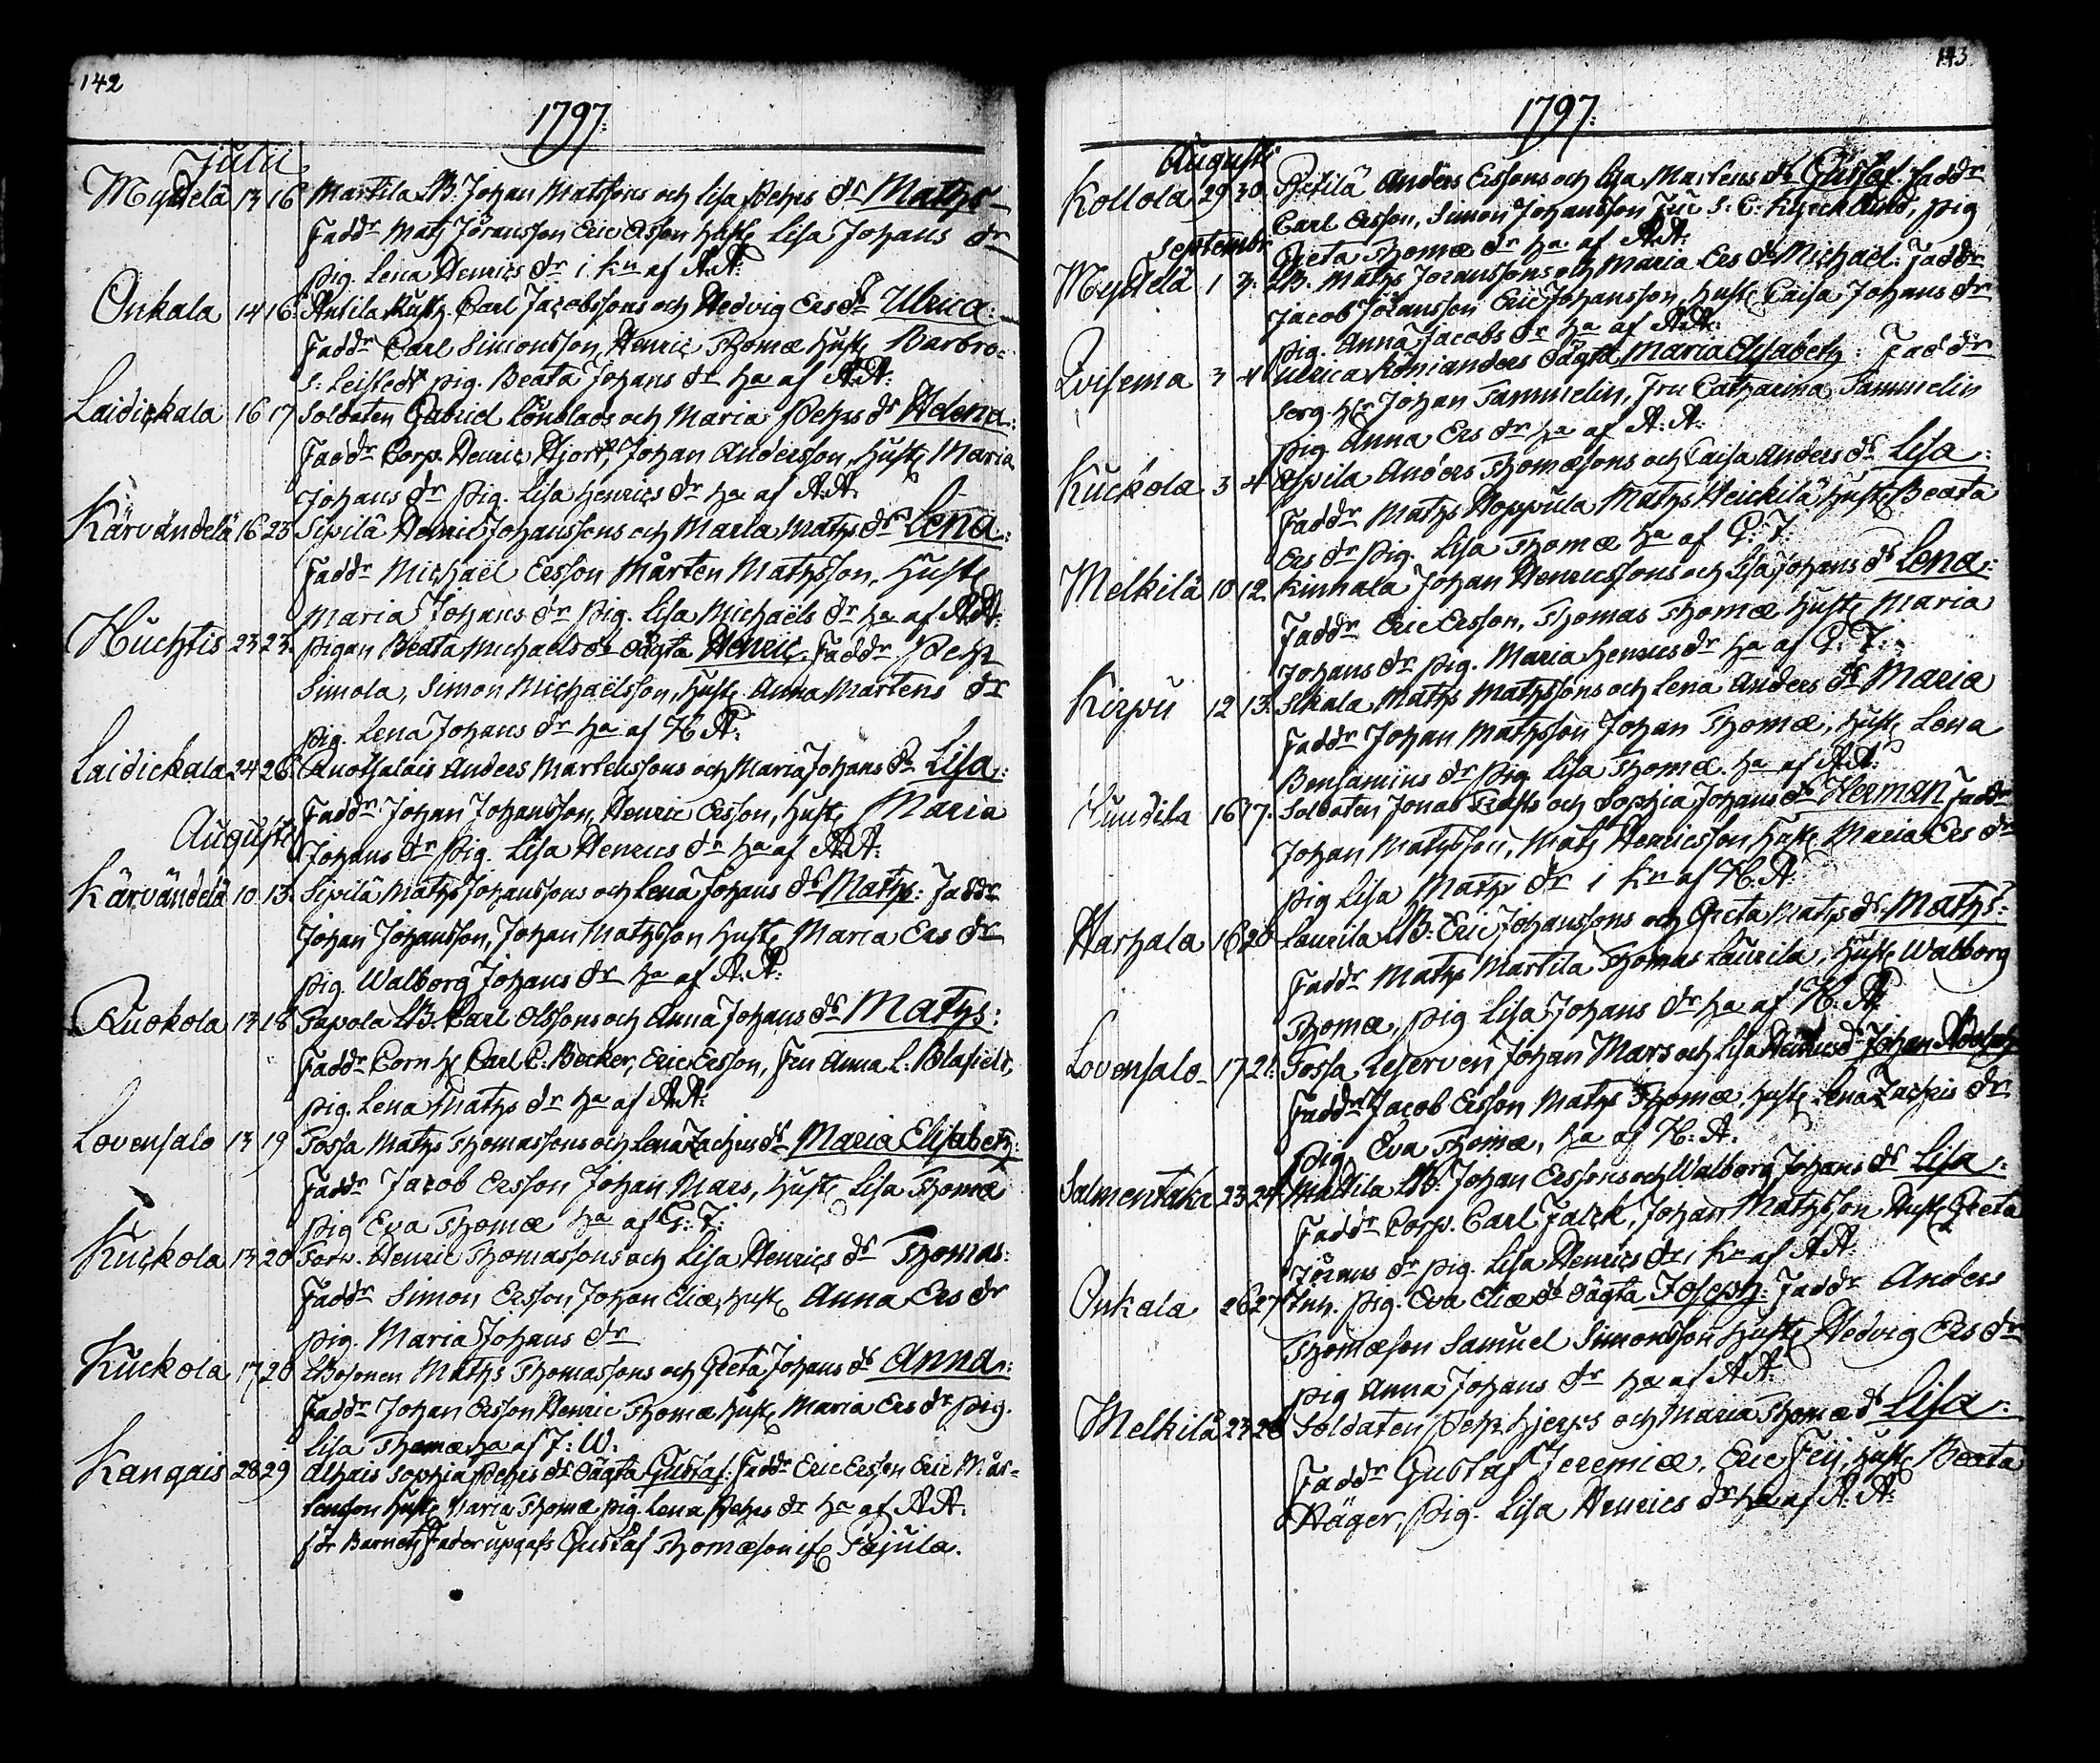 142
1797.
Julii
Myttelä 13 16 Martila LB. Johan Matssons och Lisa Pehrs dr Maths
Faddr Mats Jöransson Eric Ersson Hust. Lisa Johans dr
pig. Lena Henrics dr i kn af A.A:
Onkala 14 16 Antila Hust. Carl Jacobssons och Hedvig Ers dr Ulrica:
Faddr Carl Simonsson, Henric Thomæ Hust. Barbro
S: Leistedt pig. Beata Johans dr ha af A.A:
Laidickala 16 17 Soldaten Gabriel Lönblads och Maria Pehrs dr Helena:
Faddr Corp. Henric Hjort, Johan Andersson, Hust. Maria
Johans dr pig. Lisa Henrics dr ha af A.A.
Kärvändelä 16 23 Sipilä Henric Johanssons och Maria Maths dr Lena:
Faddr Michaël Ersson Mårten Mathsson, Hust.
Maria Johans dr pig. Lisa Michaëls dr ha af A.A:
Huchtis 23 23 pigan Beata Michaels dr oägta Henric. Faddr Pehr
Simola, Simon Michaëlsson, Hust. Anna Martens dr
pig. Lena Johans dr ha af H.A:
Laidickala 24 26 Anders Martenssons och Maria Johans dr Lisa:
Faddr Johan Johansson, Henric Ersson, Hust. Maria
Augusti
Johans dr pig. Lisa Henrics dr ha af A.A:
Kärvändelä 10 13 Sipilä Maths Johanssons och Lena Johans dr Maths: Faddr
Johan Johansson, Johan Mathsson Hust. Maria Ers dr
pig. Walborg Johans dr ha af A.A:
Ruokola 13 18 Papola LB. Carl Olssons och Anna Johans dr Maths:
Faddr Corn H. Carl C. Becker, Eric Ersson, Fru Anna L. Blafield,
pig. Lena Maths dr ha af A.A:
Lovensalo 13 19 Tossa Maths Thomassons och Lena Zachris dr Maria Elisabeth:
Faddr Jacob Ersson Johan Mars, Hust. Lisa Thomæ
pig Eva Thomæ ha af G: T:
Kuckola 13 20 Torw. Henric Thomassons och Lisa Henrics dr Thomas:
Faddr Simon Ersson, Johan Eliæ, Hust. Anna Ers dr
pig. Maria Johans dr
Kuckola 17 20 Maths Thomassons och Greta Johans dr Anna:
Faddr Johan Ersson Henric Thomæ Hust. Maria Ers dr pig.
Lisa Thomæ ha af J: W:
Kangais 28 29 Alhais Sophia Pehrs dr oägta Gustaf: Faddr Eric Ersson Eric Mår-
tenson Hust. Maria Thomæ pig. Lena Pehrs dr ha af A.A:
för Barnets Fader upgafs Gustaf Thomæson if. Pajula.
143
1797.
Augusti
Kollola 29 30 Anders Erssons och Lisa Martens dr Gustaf. Faddr
Carl Ersson, Simon Johansson Fru S: C: Kyrcklund, pig
Septembr. Greta Thomæ dr ha af A.A:
Myttelä 1 3 LB. Maths Joranssons och Maria Ers dr Michael: Faddr
Jacob Joransson Eric Johansson, Hust. Caisa Johans dr
pig. Anna Jacobs dr ha af A.A:
3 4 Ulrica oägta Maria Elisabeth: Faddr
Serg. Hr Johan Tammelin, Fru Catharina Tammelin
pig. Anna Ers dr ha af A. A:
Kuckola 3 4 Anders Thomæsons och Caisa Anders dr Lisa:
Faddr Maths Hoppula Maths Heickilä Hust. Beata
Ers dr pig. Lisa Thomæ ha af G: T:
Melkilä 10 12 Kinnala Johan Henricssons och Lisa Johans dr Lena:
Faddr Eric Ersson, Thomas Thomæ Hust. Maria
Johans dr pig. Maria Henrics dr ha af G: T:
Kirpu 12 13 Maths Mathssons och Lena Anders dr Maria
Faddr Johan Mathsson Johan Thomæ, Hust. Lena
Benjamins dr pig Lisa Thomæ ha af A.A:
16 17 Soldaten Jonas och Sophia Johans dr Herman Faddr
Johan Mathsson, Mats Henricsson Hust. Maria Ers dr
pig Lisa Maths dr i kn af H.A:
Harhala 18 20 Laurila LB: Eric Johanssons och Greta Maths dr Maths:
Faddr Maths Martila Thomas Laurila, Hust. Walborg
Thomæ, pig Lisa Johans dr ha af H. A:
Lovensalo 17 21 Tossa Reserven Johan Mars och Lisa Henrics dr Johan Adolph
Faddr Jacob Ersson Maths Thomæ Hust. Lena Zachris dr
pig. Eva Thomæ, ha af H: A.
Salmentaka 23 24 Mattila LB. Johan Erssons och Walborg Johans dr Lisa:
Faddr Corp. Carl Falck, Johan Mathsson Hust. Greta
Jörans dr pig. Lisa Henrics dr i kn af AA:
Onkala 26 27 Inh. pig. Eva Eliæ dr oägta Joseph: Faddr Anders
Thomæson Samuel Simonsson Hust. Hedvig Ers dr
pig Anna Johans dr ha af AA:
Melkilä 27 28 Soldaten Pehr Hjerps och Maria Thomæ dr Lisa:
Faddr Gustaf Jeremiæ, Eric Frij, Hust. Beata
Häger, pig. Lisa Henrics dr ha af A: A: